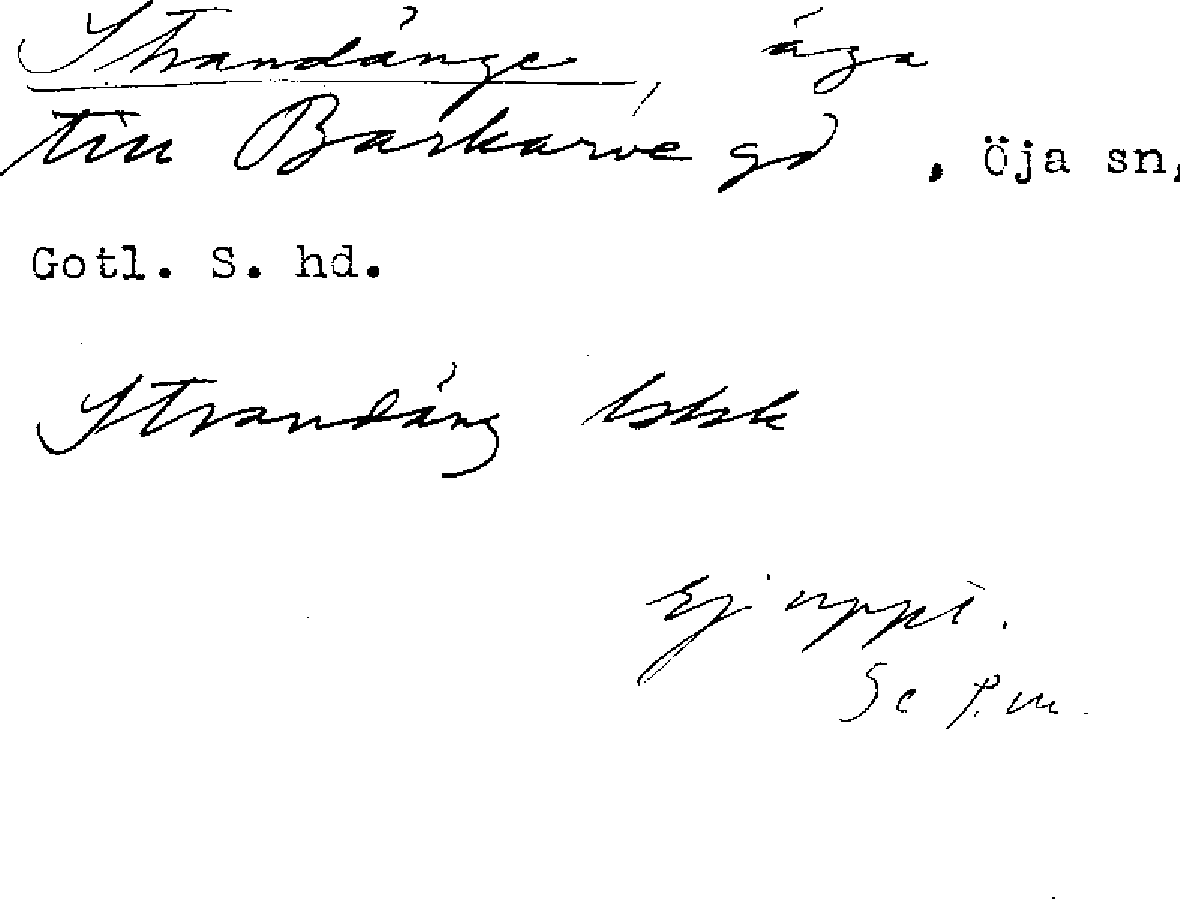 Strandänge, äga
till Barkarve gd. Öja sn,
Gotl. S. hd.
Strandäng
Ej uppt.
Se P.m.